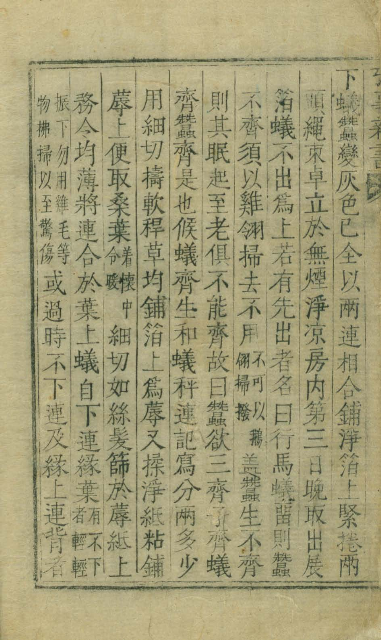 下蟻蠶變灰色已全以兩連相合鋪淨箔上緊捲兩
頭繩束卓立於無煙淨凉房内第三日晚取出展
箔蟻不出爲上若有先出者名曰行馬蟻留則蠶
不齊須以雞翎掃去不用不可以鵝翎掃撥蓋蠶生不齊
則其眠起至老俱不能齊故曰蠶欲三齊子齊蟻
齊蠶齊是也候蟻齊生和蟻秤連記寫分兩多少
用細切擣軟稈草均鋪箔上爲蓐又揉淨紙粘鋪
蓐上便取桑葉著懷中令暖細切如絲髮篩於蓐紙上
務令均薄將連合於葉上蟻自下連緣葉有不下者輕輕
振下勿用雞毛等物拂掃以至驚傷或過時不下連及緣上連背者